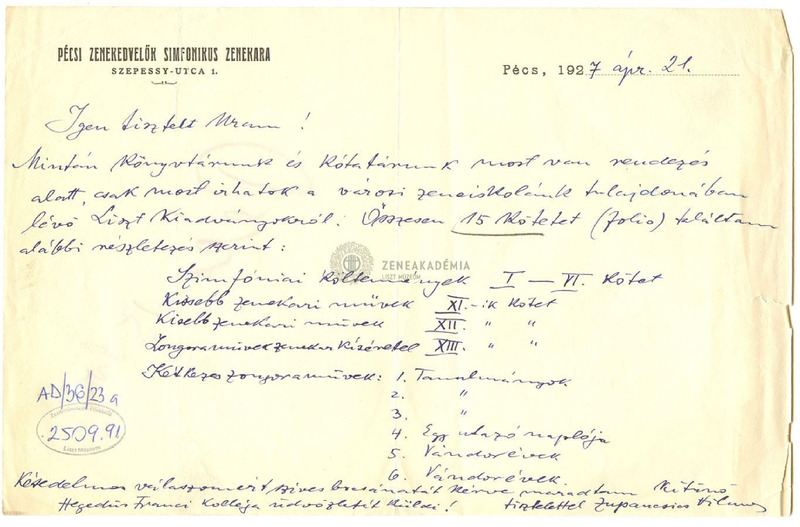 PÉCSI ZENEKEDVELŐK SIMFONIKUS ZENEKARA
SZEPESSY-UTCA 1.
Pécs, 1927 ápr. 21.
Igen tisztelt Uram!
Mintán könyvtárunk és kótatárunk most van rendezés
alatt, csak most írhatok a városi zeneiskolánk tulajdonában
lévő Liszt kiadványokról. Összesen 15 kötetet (folio) találtam
alábbi részletezés szerint:
ZENEAKADÉMIA
LISZT MÚZEUM
Szimfóniai költemények I – VI. kötet
Kissebb zenekari művek XI.-ik kötet
Kisebb zenekari művek XII. " "
Zongoraművek zenekar kísérettel XIII. " "
Kétkezes zongoraművek: 1. Tanulmányok
2. "
3. "
4. Egy utazó naplója
5. Vándorévek
6. Vándorévek.
AD/36/23a
2509.91
Késedelmes válaszomért, szíves bocsánatát kérve maradtam kitünő
Hegedüs Franci kolléga üdvözletét küldi! tisztelettel Zupancsics Hilmer